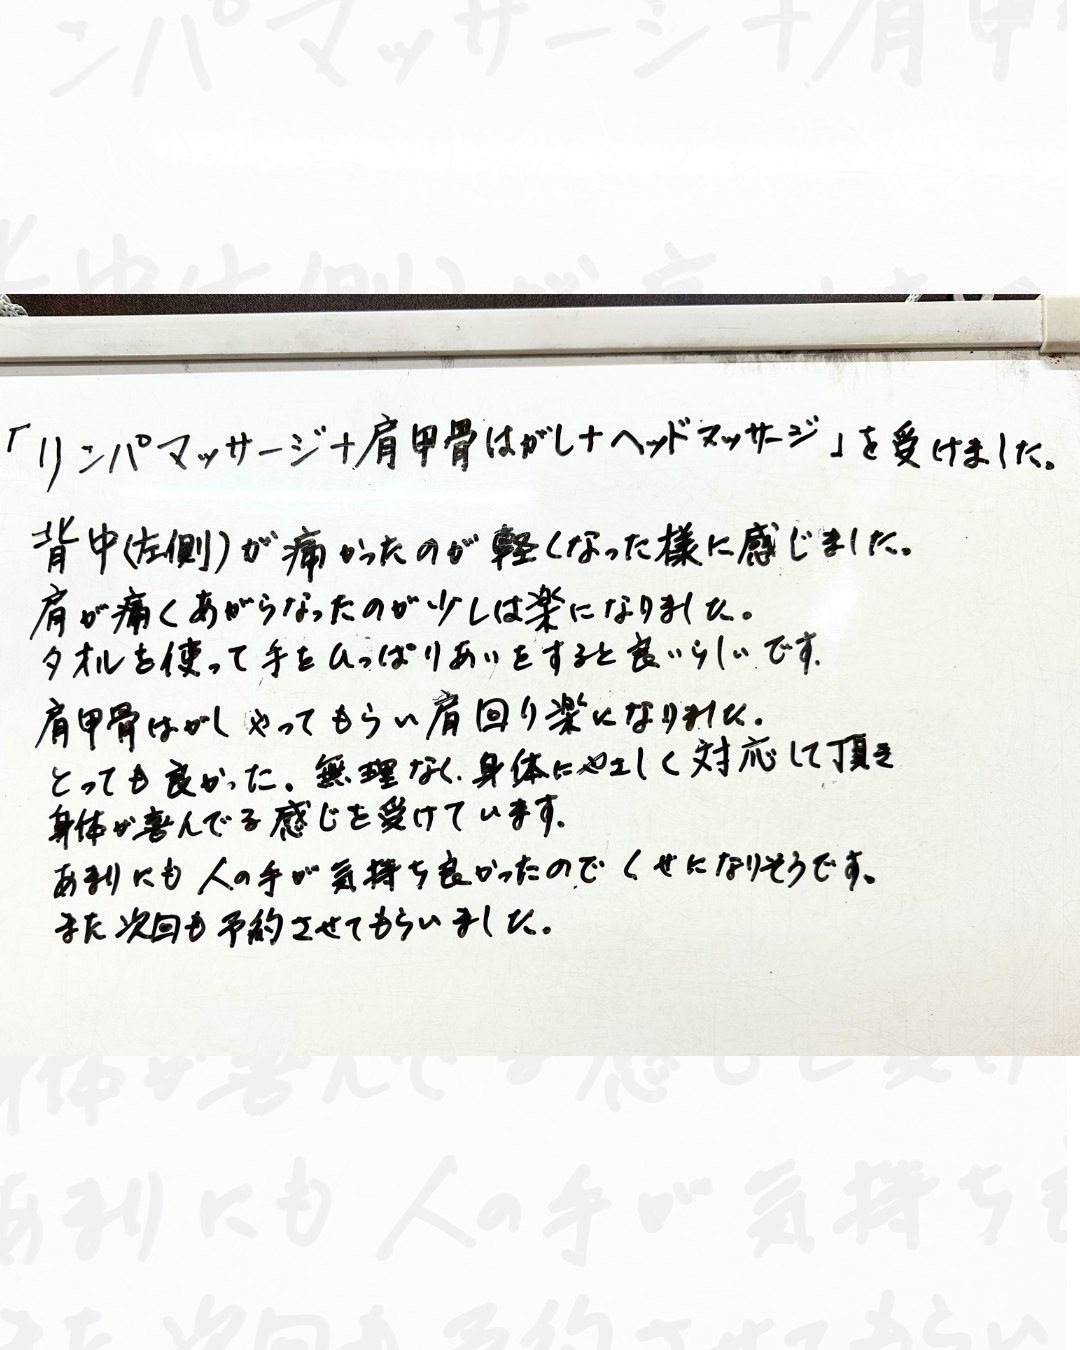 「リンパマッサージ+肩甲骨はがし+ヘッドマッサージ」を受けました。
背中(左側)が痛かったのが軽くなった様に感じました。
肩が痛くあがらなったのが少しは楽になりました。
タオルを使って手をひっぱりあいをすると良いらしいです。
肩甲骨はがしやってもらい肩回り楽になりました。
とっても良かった。無理なく、身体にやさしく対応して頂き
身体が喜んでる感じを受けています。
あまりにも人の手が気持ち良かったのでくせになりそうです。
また次回も予約させてもらいました。